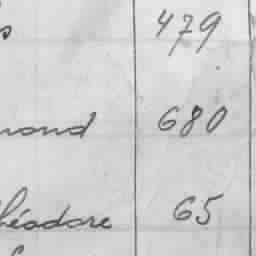 s 479
mond 680
héodore 65